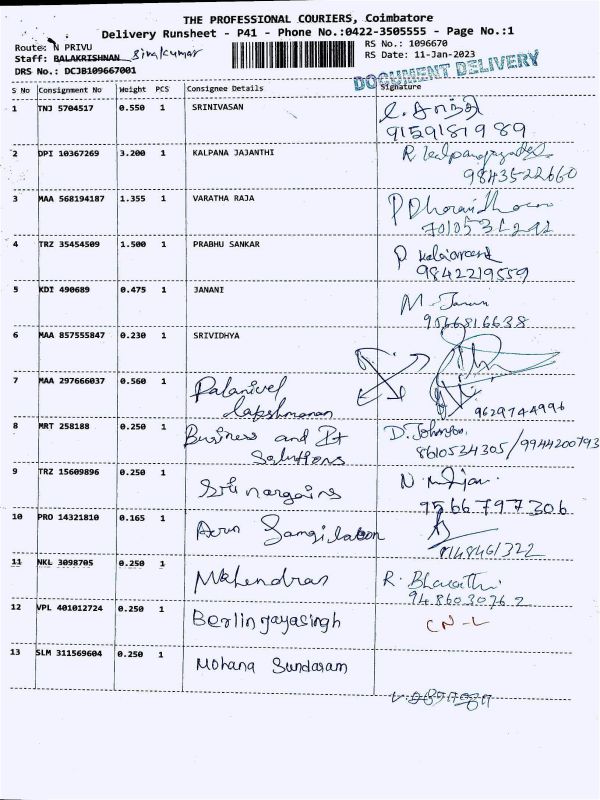 THE PROFESSIONAL COURIERS, Coimbatore
Delivery Runsheet - P41 - Phone No.:0422-3505555 - Page No.:1
Route: N PRIVU
RS No.: 1096670
Staff: BALAKRISHNAN Sivakumar
RS Date: 11-Jan-2023
DRS No.: DCJB109667001
DOCUMENT DELIVERY
S No Consignment No Weight PCS Consignee Details Signature
1 TNJ 5704517 0.550 1 SRINIVASAN
9159181989
2 DPI 10367269 3.200 1 KALPANA JAJANTHI
9843522660
3 MAA 568194187 1.355 1 VARATHA RAJA
4 TRZ 35454509 1.500 1 PRABHU SANKAR
9842219559
5 KDI 490689 0.475 1 JANANI
9566816638
6 MAA 857555847 0.230 1 SRIVIDHYA
7 MAA 297666037 0.560 1 Palanivel
Lapshmanan
9629744996
8 MRT 258188 0.250 1 Business and Pt D. Johnson
Solutions 8610534305/9944200793
9 TRZ 15609896 0.250 1
9566797306
10 PRO 14321810 0.165 1 Arun
11 NKL 3098705 0.250 1 Mahendran R. Bharathi
9486030762
12 VPL 401012724 0.250 1 Berlin jayasingh CN-L
13 SLM 311569604 0.250 1 Mohana Sundaram